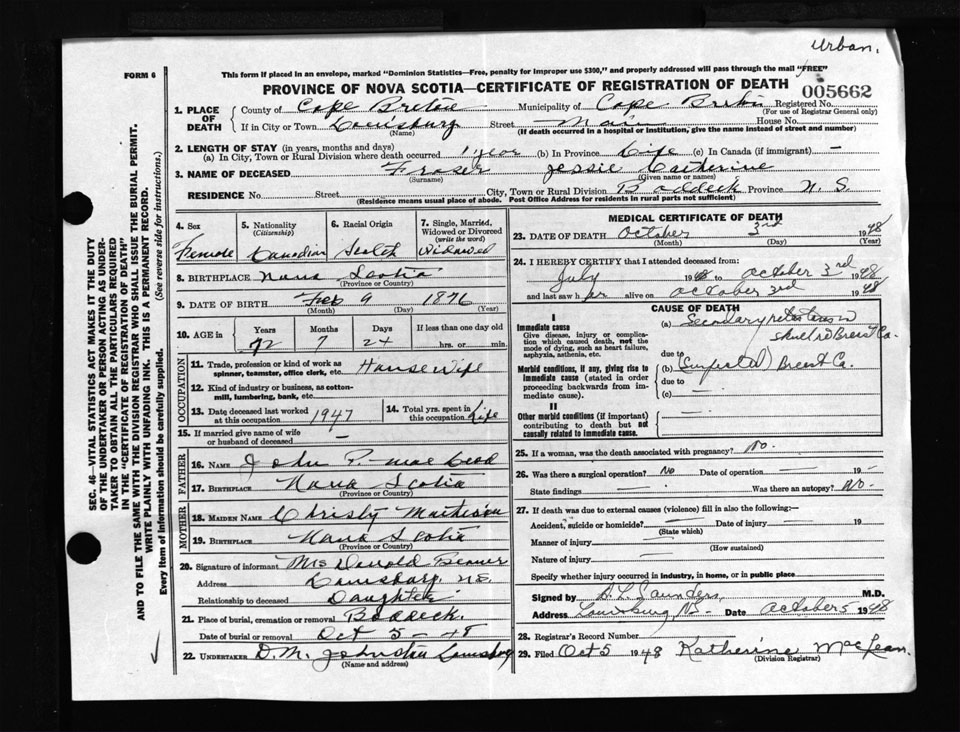 Urban.
FORM 6
This form if placed in an envelope, marked "Dominion Statistics—Free, penalty for improper use $300," and properly addressed will pass through the mail "FREE"
PROVINCE OF NOVA SCOTIA—CERTIFICATE OF REGISTRATION OF DEATH
005662
1. PLACE OF DEATH
County of Cape Breton Municipality of Cape Breton Registered No.
(For use of Registrar General only)
If in City or Town Louisburg Street Main House No.
(Name) (If death occurred in a hospital or institution, give the name instead of street and number)
2. LENGTH OF STAY (in years, months and days)
(a) In City, Town or Rural Division where death occurred 1 year (b) In Province Life (c) In Canada (if immigrant) —
3. NAME OF DECEASED Fraser Jessie Catherine
(Surname) (Given name or names)
RESIDENCE No. Street City, Town or Rural Division Baddeck Province N. S.
(Residence means usual place of abode. Post Office Address for residents in rural parts not sufficient)
4. Sex Female
5. Nationality (Citizenship) Canadian
6. Racial Origin Scotch
7. Single, Married, Widowed or Divorced (write the word) Widowed
8. BIRTHPLACE Nova Scotia
(Province or Country)
9. DATE OF BIRTH Feb 9 1876
(Month) (Day) (Year)
10. AGE in Years Months Days If less than one day old
72 7 24 hrs. or min.
OCCUPATION
11. Trade, profession or kind of work as spinner, teamster, office clerk, etc. House Wife
12. Kind of industry or business, as cotton-mill, lumbering, bank, etc.
13. Date deceased last worked at this occupation 1947
14. Total yrs. spent in this occupation Life
15. If married give name of wife or husband of deceased —
FATHER
16. NAME John P. MacLeod
17. BIRTHPLACE Nova Scotia
(Province or Country)
MOTHER
18. MAIDEN NAME Christy Matheson
19. BIRTHPLACE Nova Scotia
(Province or Country)
20. Signature of informant Mrs Donald
Address Louisburg N.S.
Relationship to deceased Daughter
21. Place of burial, cremation or removal Baddeck.
Date of burial or removal Oct 5 - 48
22. UNDERTAKER D. M. Johnston Louisburg
(Name and address)
MEDICAL CERTIFICATE OF DEATH
23. DATE OF DEATH October 3rd 1948
(Month) (Day) (Year)
24. I HEREBY CERTIFY that I attended deceased from:
July 1948 to October 3rd 1948
and last saw her alive on October 3rd 1948
CAUSE OF DEATH
I
Immediate cause
Give disease, injury or complication which caused death, not the mode of dying, such as heart failure, asphyxia, asthenia, etc.
(a) Secondary
Breast Ca.
due to
Morbid conditions, if any, giving rise to immediate cause (stated in order proceeding backwards from immediate cause).
(b) Breast Ca.
due to
(c) —
II
Other morbid conditions (if important) contributing to death but not causally related to immediate cause.
25. If a woman, was the death associated with pregnancy? No.
26. Was there a surgical operation? No Date of operation — 19 —
State findings — Was there an autopsy? No.
27. If death was due to external causes (violence) fill in also the following:—
Accident, suicide or homicide? — Date of injury — 19
(State which)
Manner of injury —
(How sustained)
Nature of injury —
Specify whether injury occurred in industry, in home, or in public place
Signed by Saunders M.D.
Address Louisburg N.S. Date October 5 1948
28. Registrar's Record Number
29. Filed Oct 5 1948 Katherine MacLean.
(Division Registrar)
SEC. 46—VITAL STATISTICS ACT MAKES IT THE DUTY
OF THE UNDERTAKER OR PERSON ACTING AS UNDER-
TAKER TO OBTAIN ALL THE PARTICULARS REQUIRED
IN THE "CERTIFICATE OF REGISTRATION OF DEATH"
AND TO FILE THE SAME WITH THE DIVISION REGISTRAR WHO SHALL ISSUE THE BURIAL PERMIT.
WRITE PLAINLY WITH UNFADING INK. THIS IS A PERMANENT RECORD.
Every item of information should be carefully supplied. (See reverse side for instructions.)